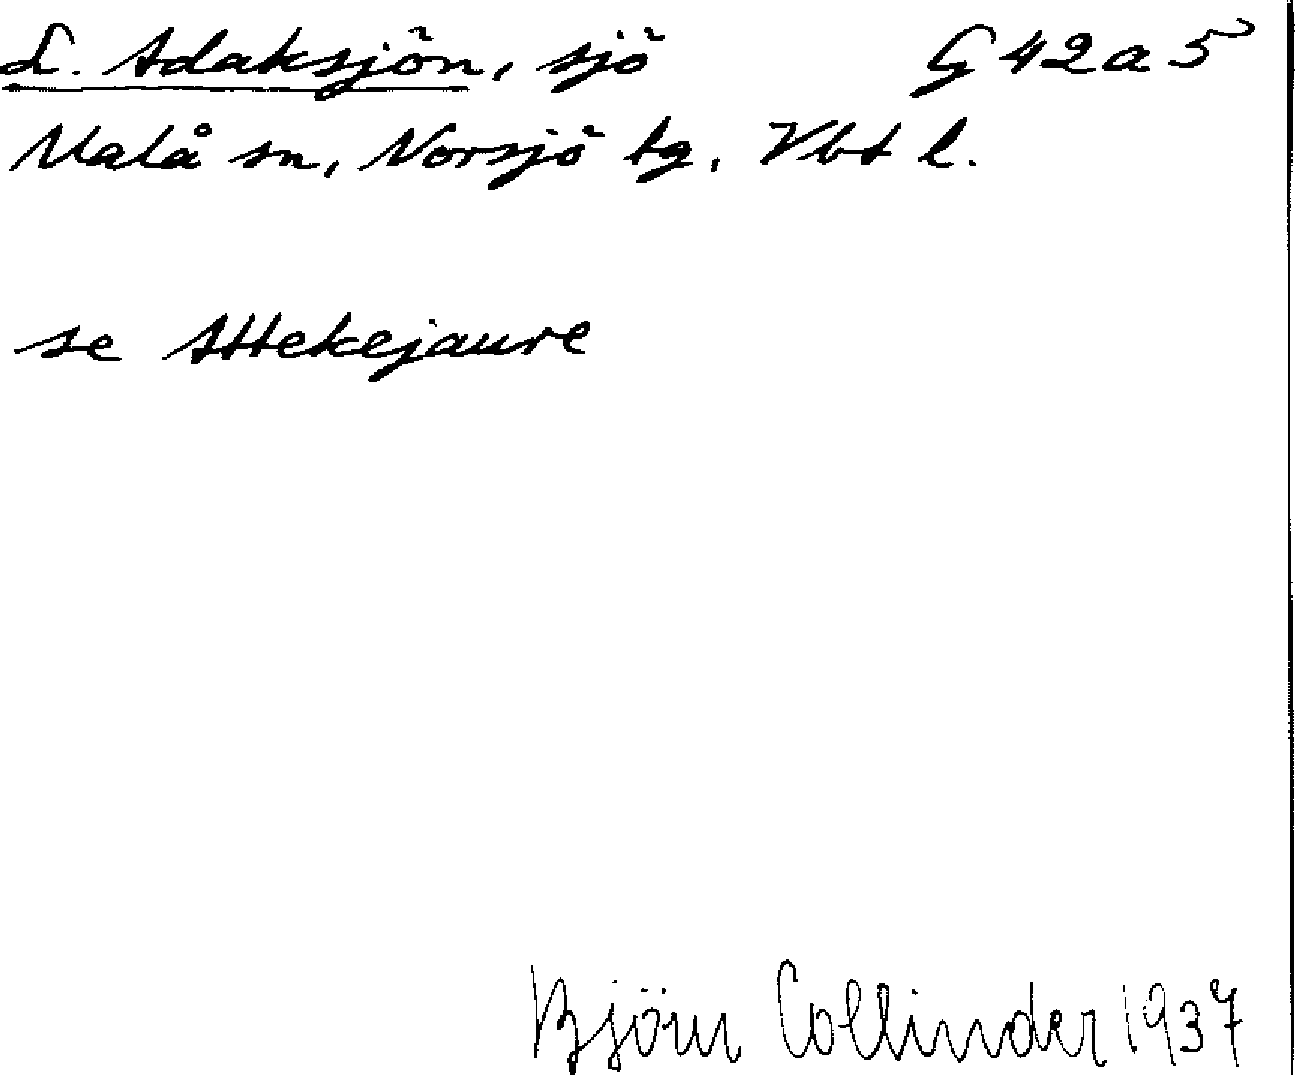 L. Adaksjön, sjö G 42 a 5
Malå sn, Norsjö tg, Vbt l.
se Attekejaure
Björn Collinder 1937